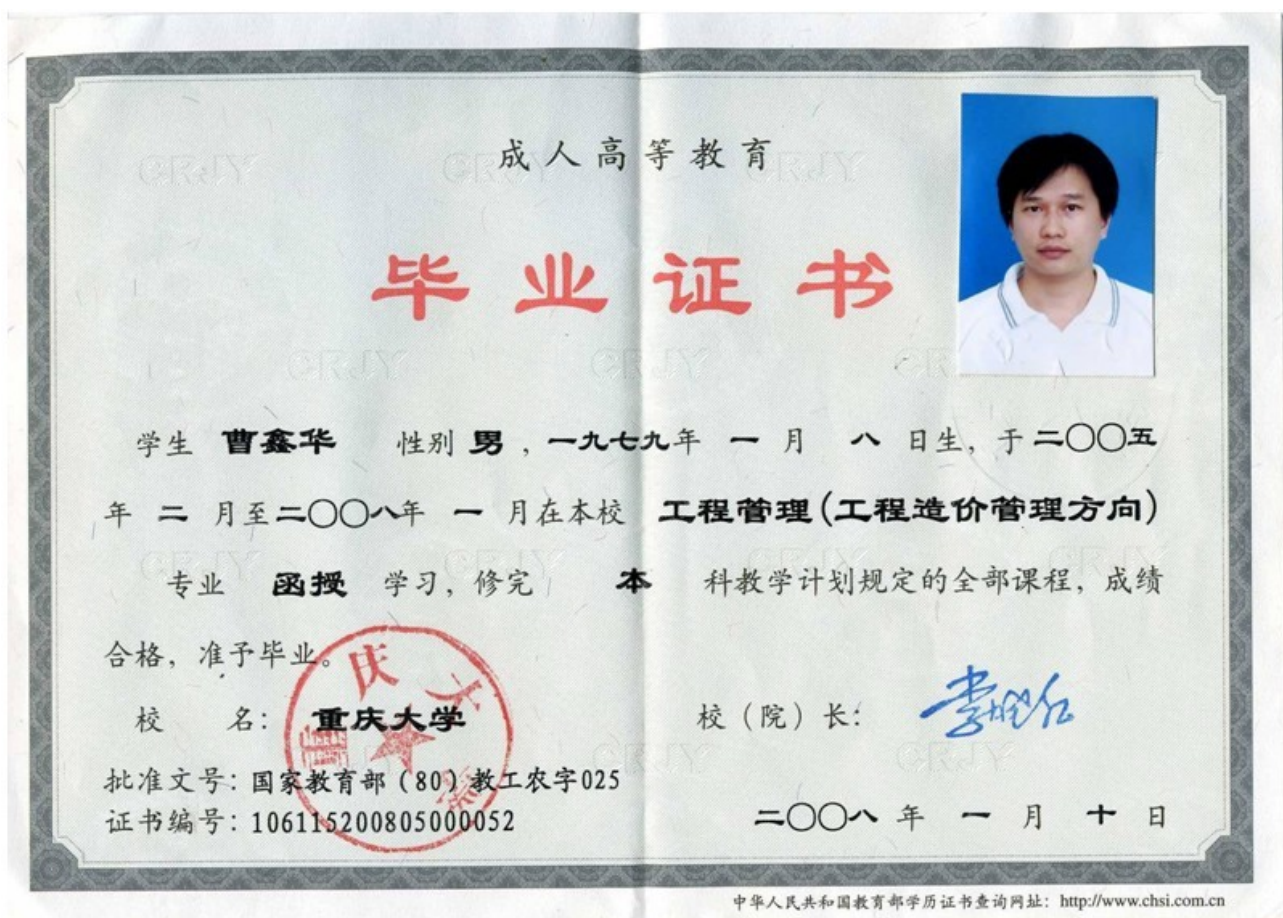 成人高等教育
毕业证书
学生 曹鑫华 性别 男，一九七九年 一 月 八 日生，于 二〇〇五
年 二 月至二〇〇八年 一 月在本校 工程管理（工程造价管理方向）
专业 函授 学习，修完 本 科教学计划规定的全部课程，成绩
合格，准予毕业。
校 名：重庆大学 校（院）长：
批准文号：国家教育部（80）教工农字025
证书编号：106115200805000052
二〇〇八 年 一 月 十 日
中华人民共和国教育部学历证书查询网址：http://www.chsi.com.cn
CRJY